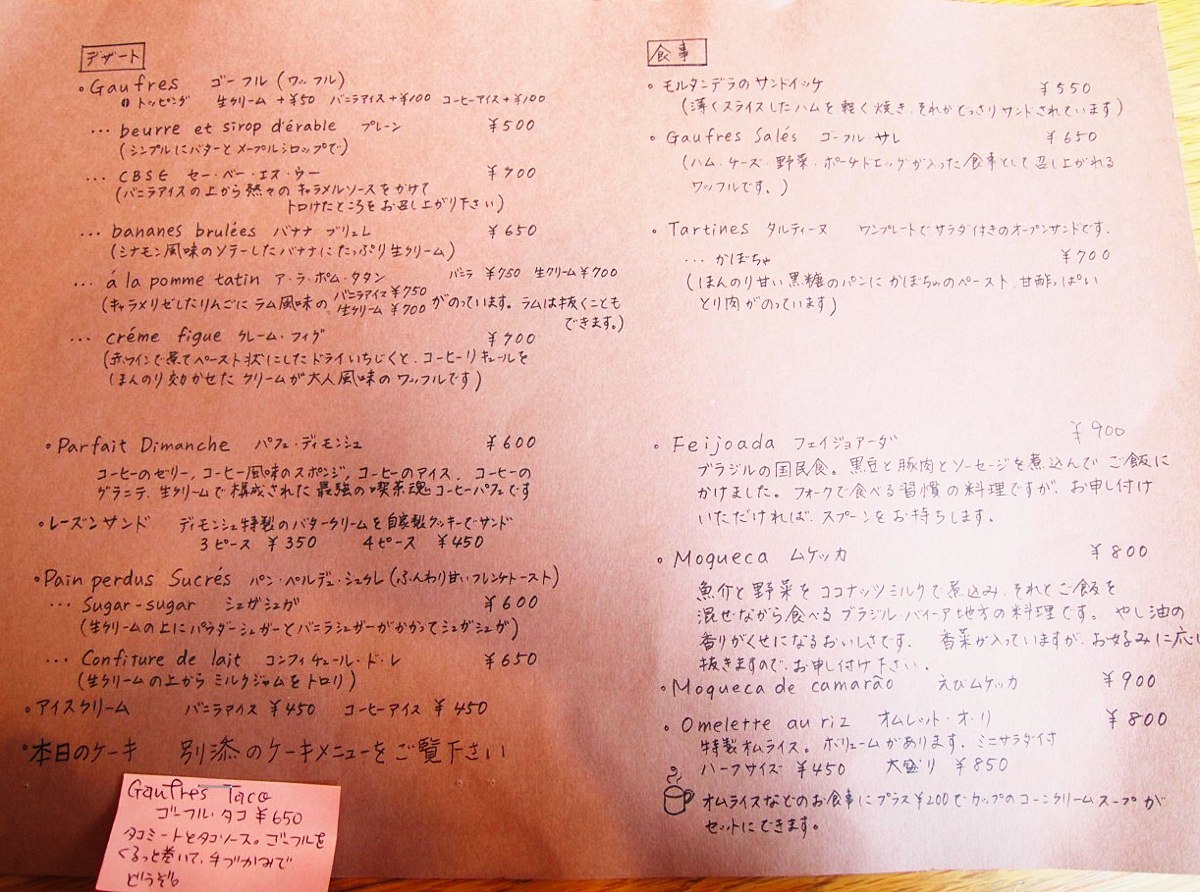 デザート
・Gaufres ゴーフル (ワッフル)
トッピング 生クリーム +¥50 バニラアイス+¥100 コーヒーアイス+¥100
… beurre et sirop d'érable プレーン ¥500
(シンプルにバターとメープルシロップで)
… CBSE セー・ベー・エス・ウー ¥700
(バニラアイスの上から熱々のキャラメルソースをかけて
トロけたところをお召し上がり下さい)
… bananes brulées バナナ ブリュレ ¥650
(シナモン風味のソテーしたバナナにたっぷり生クリーム)
… á la pomme tatin ア・ラ・ポム・タタン バニラ ¥750 生クリーム ¥700
(キャラメリゼしたりんごにラム風味の バニラアイス ¥750 生クリーム ¥700 がのっています。ラムは抜くことも
できます。)
… créme figue クレーム・フィグ ¥700
(赤ワインで煮てペースト状にしたドライいちじくと、コーヒーリキュールを
ほんのり効かせた クリームが大人風味のワッフルです)
・Parfait Dimanche パフェ・ディモンシュ ¥600
コーヒーのゼリー、コーヒー風味のスポンジ、コーヒーのアイス、コーヒーの
グラニテ、生クリームで構成された最強の喫茶魂コーヒーパフェです
・レーズンサンド ディモンシュ特製のバタークリームを自家製クッキーでサンド
3ピース ¥350 4ピース ¥450
・Pain perdus Sucrés パン・ペルデュ・シュクレ (ふんわり甘いフレンチトースト)
… Sugar-sugar シュガシュガ ¥600
(生クリームの上にパウダーシュガーとバニラシュガーがかかってシュガシュガ)
… Confiture de lait コンフィチュール・ド・レ ¥650
(生クリームの上から ミルクジャムをトロリ)
・アイスクリーム バニラアイス ¥450 コーヒーアイス ¥450
・本日のケーキ 別添のケーキメニューをご覧下さい
Gaufres Taco
ゴーフル・タコ ¥650
タコミートとタコソース。ゴーフルを
くるっと巻いて、手づかみで
どうぞ。
食事
・モルタンデラのサンドイッチ ¥550
(薄くスライスしたハムを軽く焼き、それがどっさりサンドされています)
・Gaufres Salés ゴーフル・サレ ¥650
(ハム・チーズ・野菜・ポーチドエッグが入った食事として召し上がれる
ワッフルです。)
・Tartines タルティーヌ ワンプレートでサラダ付きのオープンサンドです。
… かぼちゃ ¥700
(ほんのり甘い黒糖のパンにかぼちゃのペースト、甘酢っぱい
とり肉がのっています)
・Feijoada フェイジョアーダ ¥900
ブラジルの国民食。黒豆と豚肉とソーセージを煮込んでご飯に
かけました。フォークで食べる習慣の料理ですが、お申し付け
いただければ、スプーンをお持ちします。
・Moqueca ムケッカ ¥800
魚介と野菜をココナッツミルクで煮込み、それとご飯を
混ぜながら食べるブラジル・バイーア地方の料理です。やし油の
香りがくせになるおいしさです。 香菜が入っていますが、お好みに応じ
抜きますので、お申し付け下さい。
・Moqueca de camarão えびムケッカ ¥900
・Omelette au riz オムレット・オ・リ ¥800
特製オムライス。ボリュームがあります。ミニサラダ付
ハーフサイズ ¥450 大盛り ¥850
オムライスなどのお食事にプラス¥200でカップのコーンクリームスープが
セットにできます。